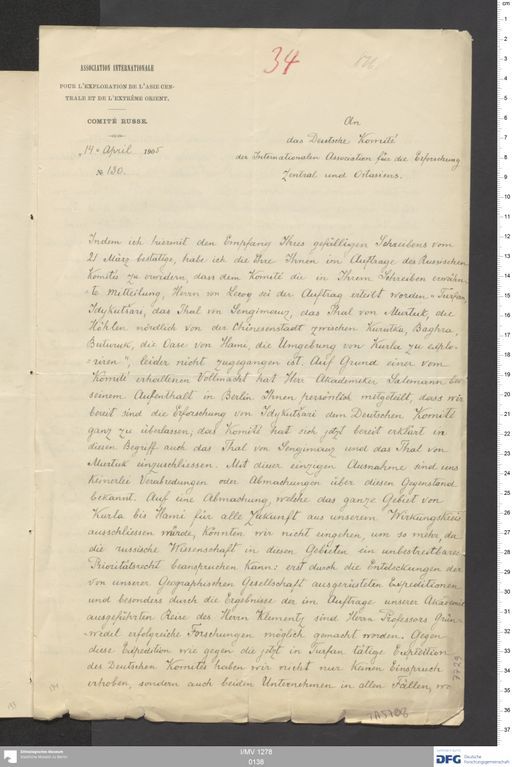 34
ASSOCIATION INTERNATIONALE
POUR L'EXPLORATION DE L'ASIE CEN-
TRALE ET DE L'EXTRÊME ORIENT.
COMITÉ RUSSE.
"14" April 1905
№ 130.
An
das Deutsche Komité
der Internationalen Association für die Erforschung
Zentral und Ostasiens.
Indem ich hiermit den Empfang Ihres gefälligen Schreibens vom
21 März bestätige, habe ich die Ehre Ihnen im Auftrage des Russischen
Komités zu erwidern, dass dem Komité die in Ihrem Schreiben erwähn-
te Mitteilung, Herrn von Lecoq sei der Auftrag erteilt worden "Turfan,
Idykutšari, das Thal von Sengimauz, das Thal von Murtuk, die
Höhlen nördlich von der Chinesenstadt zwischen Kurutka, Baghra,
Buluruk, die Oase von Hami, die Umgebung von Kurla zu explo-
rieren", leider nicht zugegangen ist. Auf Grund einer vom
Komité erhaltenen Vollmacht hat Herr Akademiker Salemann bei
seinem Aufenthalt in Berlin Ihnen persönlich mitgeteilt, dass wir
bereit sind die Erforschung von Idykutšari dem Deutschen Komité
ganz zu überlassen; das Komité hat sich jetzt bereit erklärt in
diesen Begriff auch das Thal von Sengimauz und das Thal von
Murtuk einzuschliessen. Mit dieser einzigen Ausnahme sind uns
keinerlei Verabredungen oder Abmachungen über diesen Gegenstand
bekannt. Auf eine Abmachung, welche das ganze Gebiet von
Kurla bis Hami für alle Zukunft aus unserem Wirkungskreis
ausschliessen würde, könnten wir nicht eingehen, um so mehr, da
die russische Wissenschaft in diesen Gebieten ein unbestreitbares
Prioritätsrecht beanspruchen kann: erst durch die Entdeckungen der
von unserer Geographischen Gesellschaft ausgerüsteten Expeditionen
und besonders durch die Ergebnisse der im Auftrage unserer Akademie
ausgeführten Reise des Herrn Klementz sind Herrn Professors Grün-
wedel erfolgreiche Forschungen möglich gemacht worden. Gegen
diese Expedition wie gegen die jetzt in Turfan tätige Expedition
des Deutschen Komités haben wir nicht nur keinen Einspruch
erhoben, sondern auch beiden Unternehmen in allen Fällen, wo
7729
Ethnologisches Museum
Staatliche Museen zu Berlin
I/MV 1278
0138
DFG Deutsche
Forschungsgemeinschaft